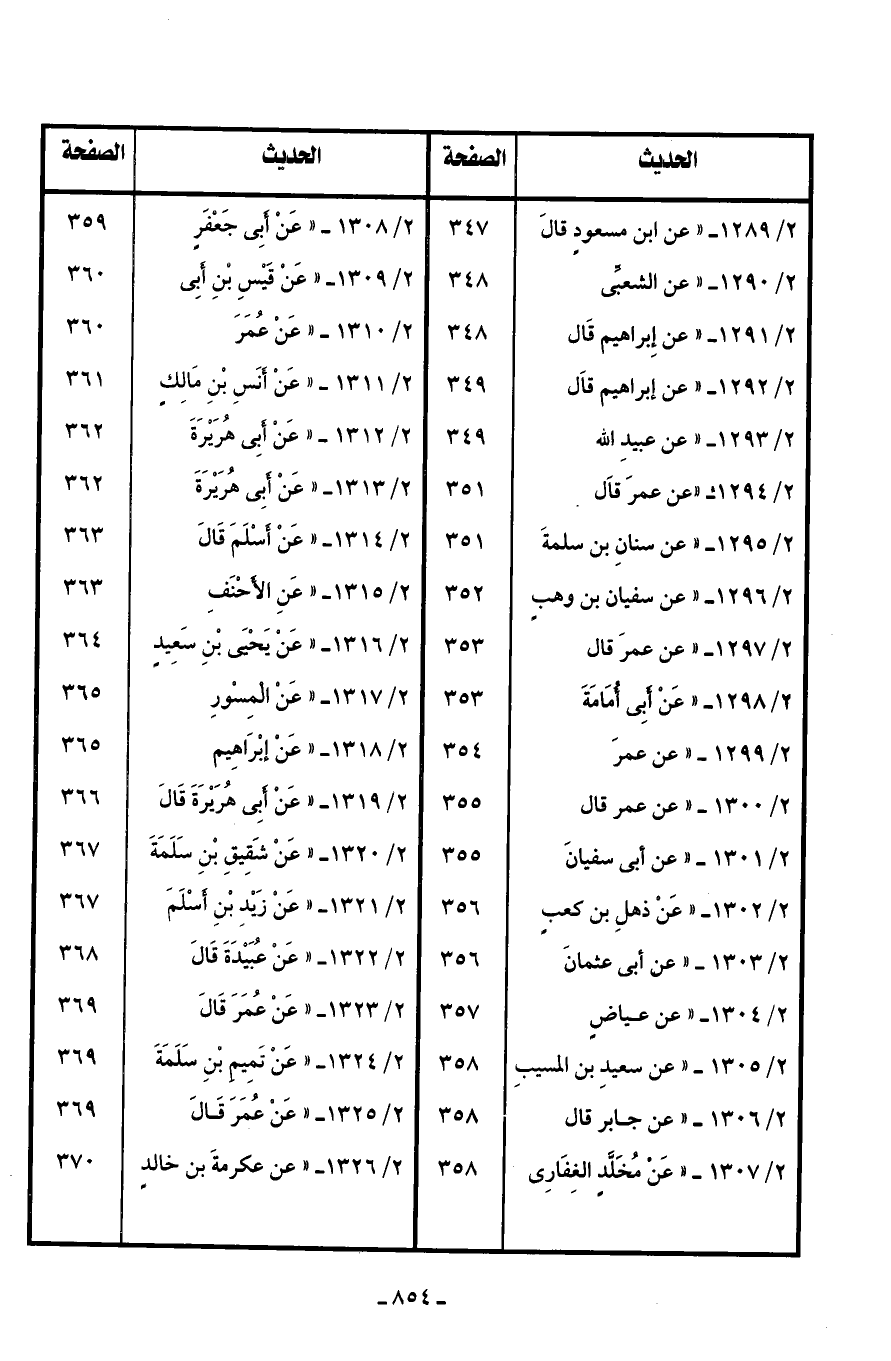 الحديث الصفحة الحديث الصفحة
٢/ ١٢٨٩ـ « عن ابن مسعودٍ قالَ ٣٤٧ ٢/ ١٣٠٨ ـ « عَنْ أَبِى جَعْفَرٍ ٣٥٩
٢/ ١٢٩٠ـ « عن الشعبِّى ٣٤٨ ٢/ ١٣٠٩ـ « عَنْ قَيْسِ بْنِ أَبِى ٣٦٠
٢/ ١٢٩١ـ « عن إبراهيم قَال ٣٤٨ ٢/ ١٣١٠ ـ « عَنْ عُمَرَ ٣٦٠
٢/ ١٢٩٢ـ « عن إبراهيم قاَل ٣٤٩ ٢/ ١٣١١ ـ « عَنْ أَنَسِ بْنِ مَالِكٍ ٣٦١
٢/ ١٢٩٣ـ « عن عبيدِ الله ٣٤٩ ٢/ ١٣١٢ ـ « عَنْ أَبِى هُرَيْرَةَ ٣٦٢
٢/ ١٢٩٤ـ «عن عمرَ قاَل ٣٥١ ٢/ ١٣١٣ـ « عَنْ أَبِى هُرَيْرَةَ ٣٦٢
٢/ ١٢٩٥ـ « عن سنانِ بن سلمةَ ٣٥١ ٢/ ١٣١٤ـ « عَنْ أَسْلَمَ قَالَ ٣٦٣
٢/ ١٢٩٦ـ « عن سفيان بن وهبٍ ٣٥٢ ٢/ ١٣١٥ـ « عَنِ الأَحْنَفِ ٣٦٣
٢/ ١٢٩٧ـ « عن عمرَ قال ٣٥٣ ٢/ ١٣١٦ـ « عَنْ يَحْيَى بْنِ سَعِيدٍ ٣٦٤
٢/ ١٢٩٨ـ « عَنْ أَبِى أُمَامَةَ ٣٥٣ ٢/ ١٣١٧ـ « عَنْ الْمِسْوَرِ ٣٦٥
٢/ ١٢٩٩ ـ « عن عمرَ ٣٥٤ ٢/ ١٣١٨ـ « عَنْ إِبْرَاهِيم ٣٦٥
٢/ ١٣٠٠ ـ « عن عمر قال ٣٥٥ ٢/ ١٣١٩ـ « عَنْ أَبِى هُرَيْرَةَ قَالَ ٣٦٦
٢/ ١٣٠١ ـ « عن أبى سفيانَ ٣٥٥ ٢/ ١٣٢٠ـ « عَنْ شَقِيقِ بْنِ سَلَمَةَ ٣٦٧
٢/ ١٣٠٢ـ « عَنْ ذهلِ بن كعبٍ ٣٥٦ ٢/ ١٣٢١ـ « عَنْ زَيْدِ بْنِ أَسْلَمَ ٣٦٧
٢/ ١٣٠٣ ـ « عن أبى عثمانَ ٣٥٦ ٢/ ١٣٢٢ـ « عَنْ عُبَيْدَةَ قَالَ ٣٦٨
٢/ ١٣٠٤ـ « عن عـياضٍ ٣٥٧ ٢/ ١٣٢٣ـ « عَنْ عُمَرَ قَالَ ٣٦٩
٢/ ١٣٠٥ ـ « عن سعيدِ بن المسيبِ ٣٥٨ ٢/ ١٣٢٤ـ « عَنْ تَمِيمِ بْنِ سَلَمَةَ ٣٦٩
٢/ ١٣٠٦ ـ « عن جـابر قال ٣٥٨ ٢/ ١٣٢٥ـ « عَنْ عُمَرَ قَـالَ ٣٦٩
٢/ ١٣٠٧ ـ « عَنْ مُخَلَّدٍ الغِفَارِى ٣٥٨ ٢/ ١٣٢٦ـ « عن عكرمةَ بن خالدٍ ٣٧٠
ـ ٨٥٤ ـ